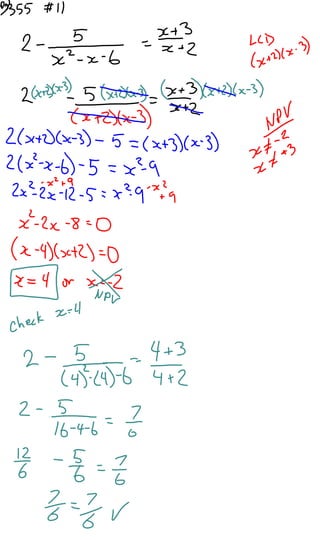 355 #11
2 - 5/(x² - x - 6) = (x+3)/(x+2)
LCD
(x+2)(x-3)
2(x+2)(x-3) - 5(x+2)(x-3)/((x+2)(x-3)) = (x+3)(x+2)(x-3)/(x+2)
NPV
x ≠ -2
x ≠ +3
2(x+2)(x-3) - 5 = (x+3)(x-3)
2(x²-x-6) - 5 = x²-9
-x²+9 -x²
2x²-2x-12-5 = x²-9 +9
x²-2x-8=0
(x-4)(x+2)=0
x=4 or x=-2
NPV
check x=4
2 - 5/((4)²-(4)-6) = (4+3)/(4+2)
2 - 5/(16-4-6) = 7/6
12/6 - 5/6 = 7/6
7/6 = 7/6 ✓